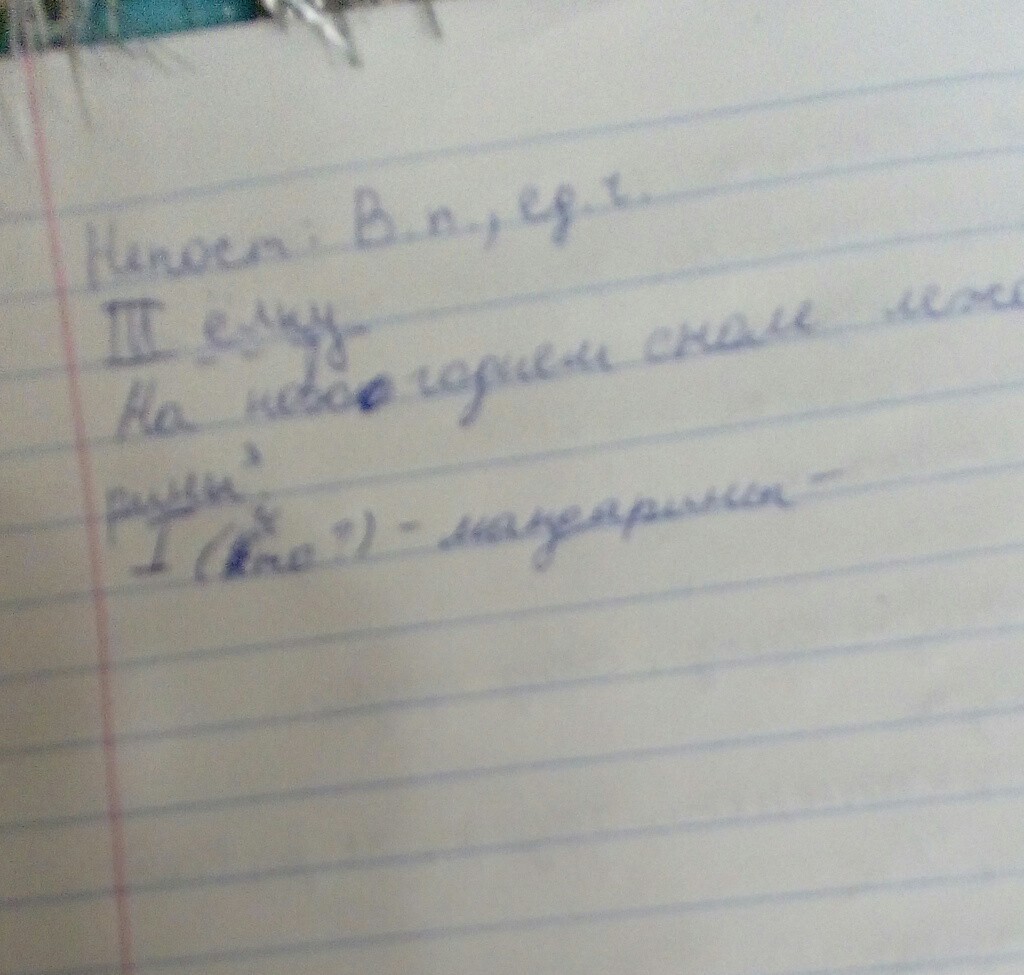 Непост: В.п., ед.ч.
III елку
На новогоднем столе лежа
рины³
I (что?) - мандарины -